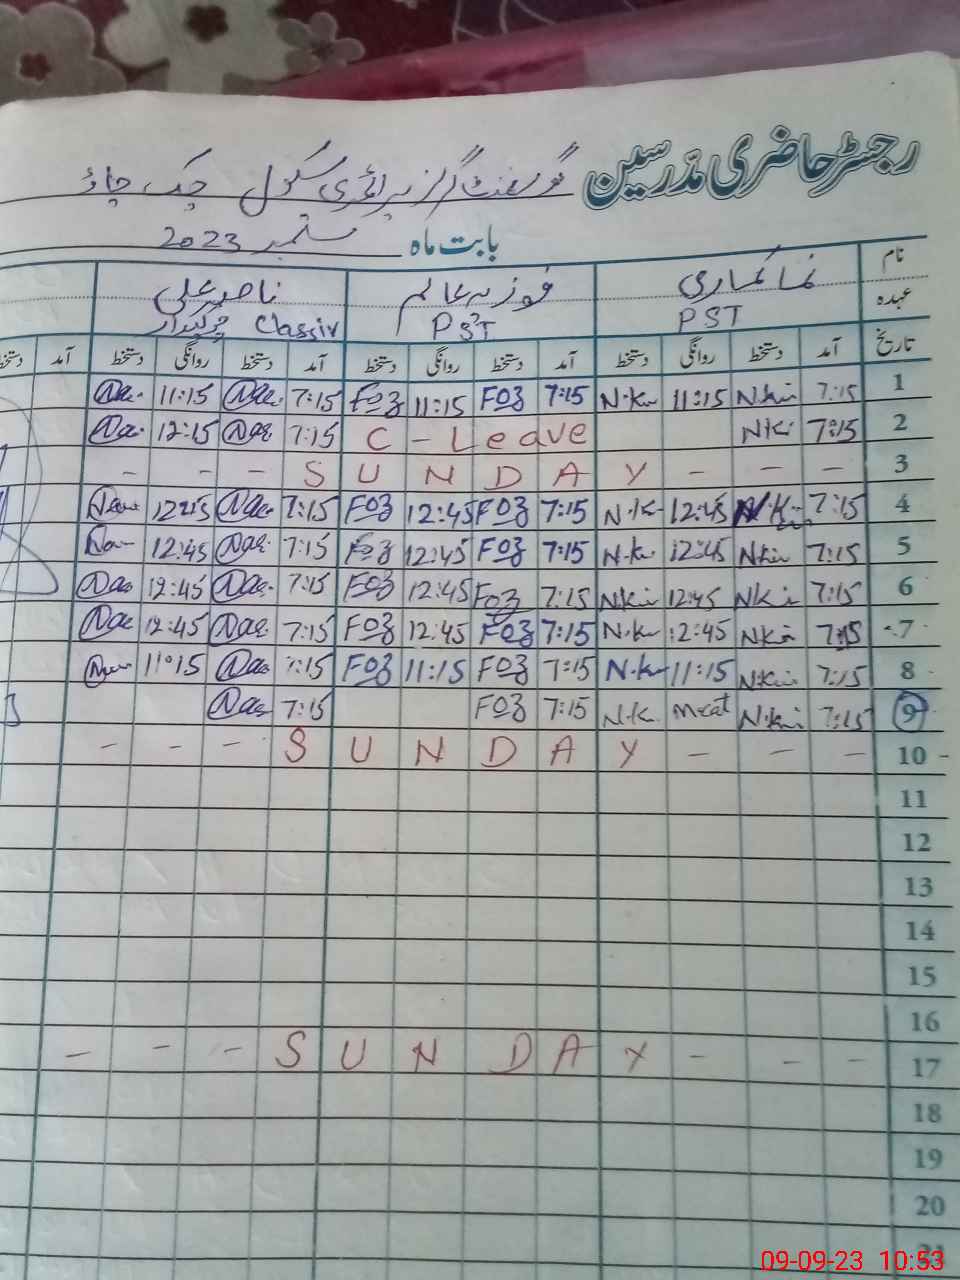 رجسٹر حاضری مدرسین گورنمنٹ گرلز پرائمری سکول چک چاؤ
بابت ماہ ستمبر 2023
نام نما کماری فوزیہ عالم ناصر علی
عہدہ PST PST Class iv چوکیدار
تاریخ آمد دستخط روانگی دستخط آمد دستخط روانگی دستخط آمد دستخط روانگی دستخط آمد دستخط
1 7:15 N.Ku 11:15 N.Ku 7:15 Foz 11:15 Foz 7:15 Nae 11:15 Nae
2 7:15 N.K C - Leave 7:15 Nae 12:15 Nae
3 - - - S U N D A Y - - -
4 7:15 N.K 12:45 N.K 7:15 Foz 12:45 Foz 7:15 Nae Nae
5 7:15 NKu 12:45 N.K 7:15 Foz 12:45 Foz 7:15 Nae 12:45 Nae
6 7:15 NKu 12:45 NKu 7:15 Foz 12:45 Foz 7:15 Nae 12:45 Nae
7 7:15 NKu 12:45 N.K 7:15 Foz 12:45 Foz 7:15 Nae 12:45 Nae
8 7:15 N.Ku 11:15 N.K 7:15 Foz 11:15 Foz 7:15 Nae 11:15 Nae
9 7:15 N.Ku N.K 7:15 Foz 7:15 Nae
10 - - - S U N D A Y - - -
11
12
13
14
15
16
17 - - - S U N D A Y - - -
18
19
20
21
09-09-23 10:53